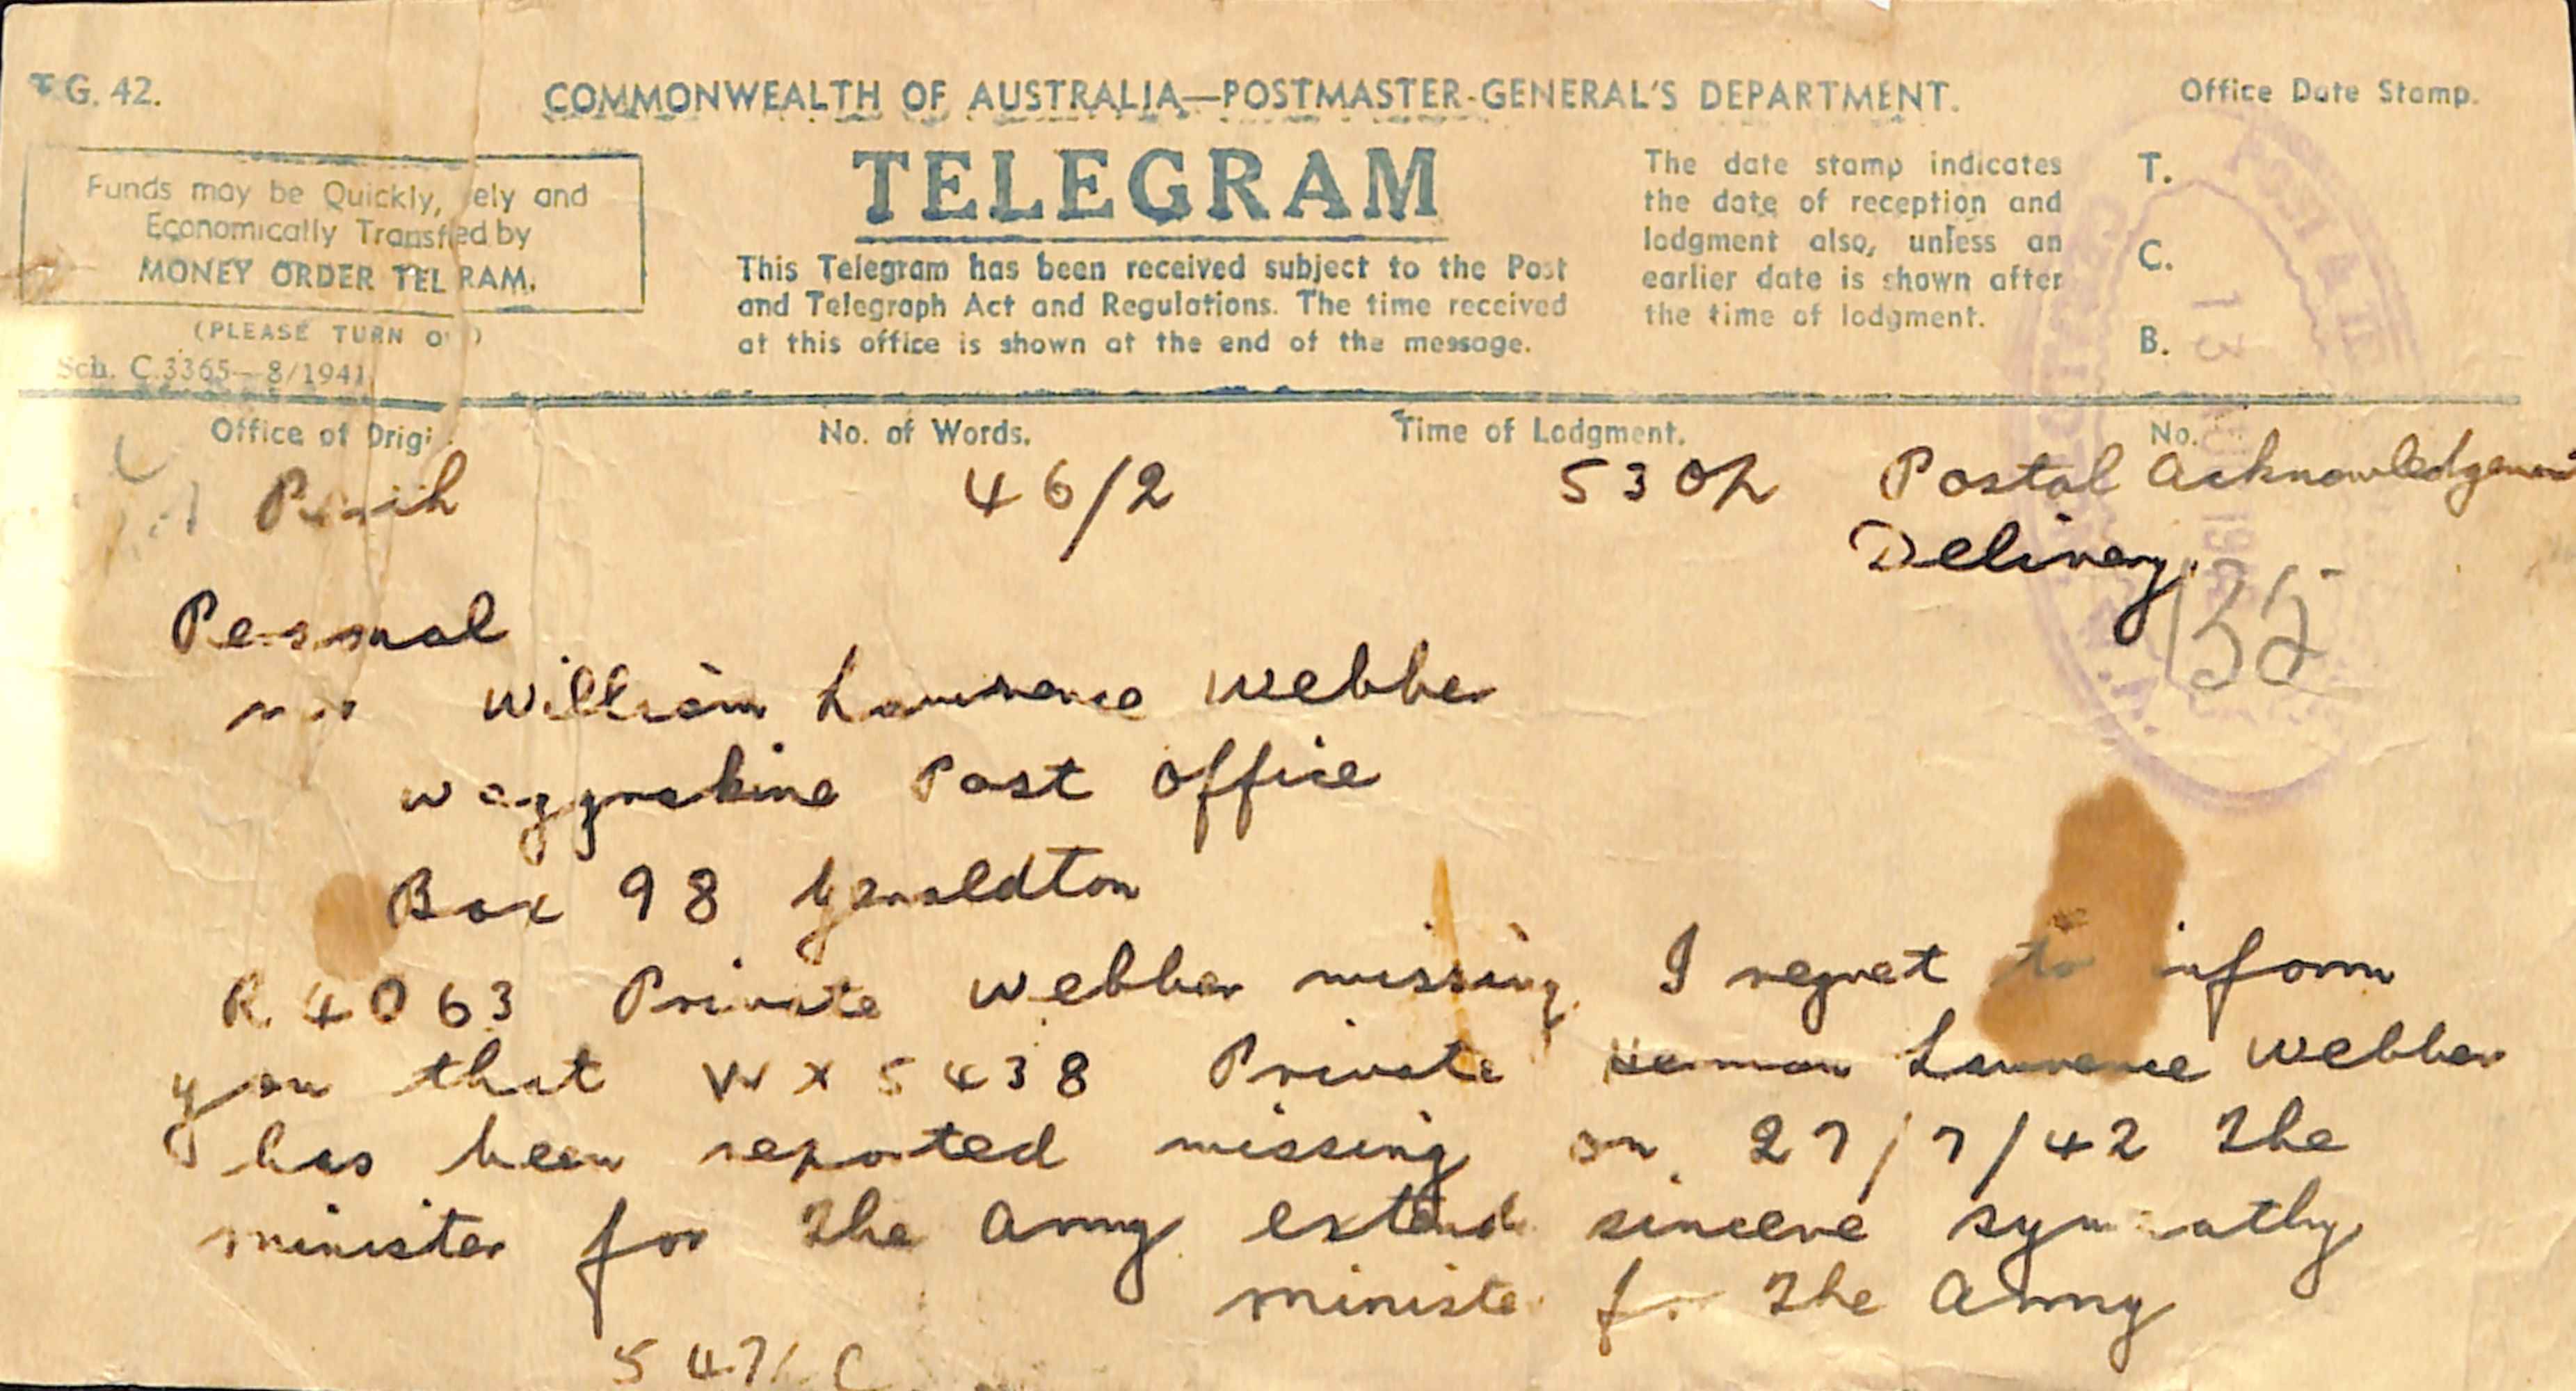 T.G. 42.
COMMONWEALTH OF AUSTRALIA—POSTMASTER-GENERAL'S DEPARTMENT.
Office Date Stamp.
Funds may be Quickly, ely and
Economically Transf ed by
MONEY ORDER TEL RAM.
(PLEASE TURN O )
Sch. C.3365—8/1941.
TELEGRAM
This Telegram has been received subject to the Post
and Telegraph Act and Regulations. The time received
at this office is shown at the end of the message.
The date stamp indicates
the date of reception and
lodgment also, unless an
earlier date is shown after
the time of lodgment.
T.
C.
B.
Office of Origi
No. of Words.
Time of Lodgment.
No.
Perth
46/2
530p
Postal Acknowledgement
Delivery.
135
Personal
mr William Lawrence Webber
waggrakine Post Office
Box 98 Geraldton
R 4063 Private Webber missing I regret to inform
you that WX5438 Private Lawrence Webber
has been reported missing on 27/7/42 The
minister for The Army extend sincere sympathy
minister for The Army